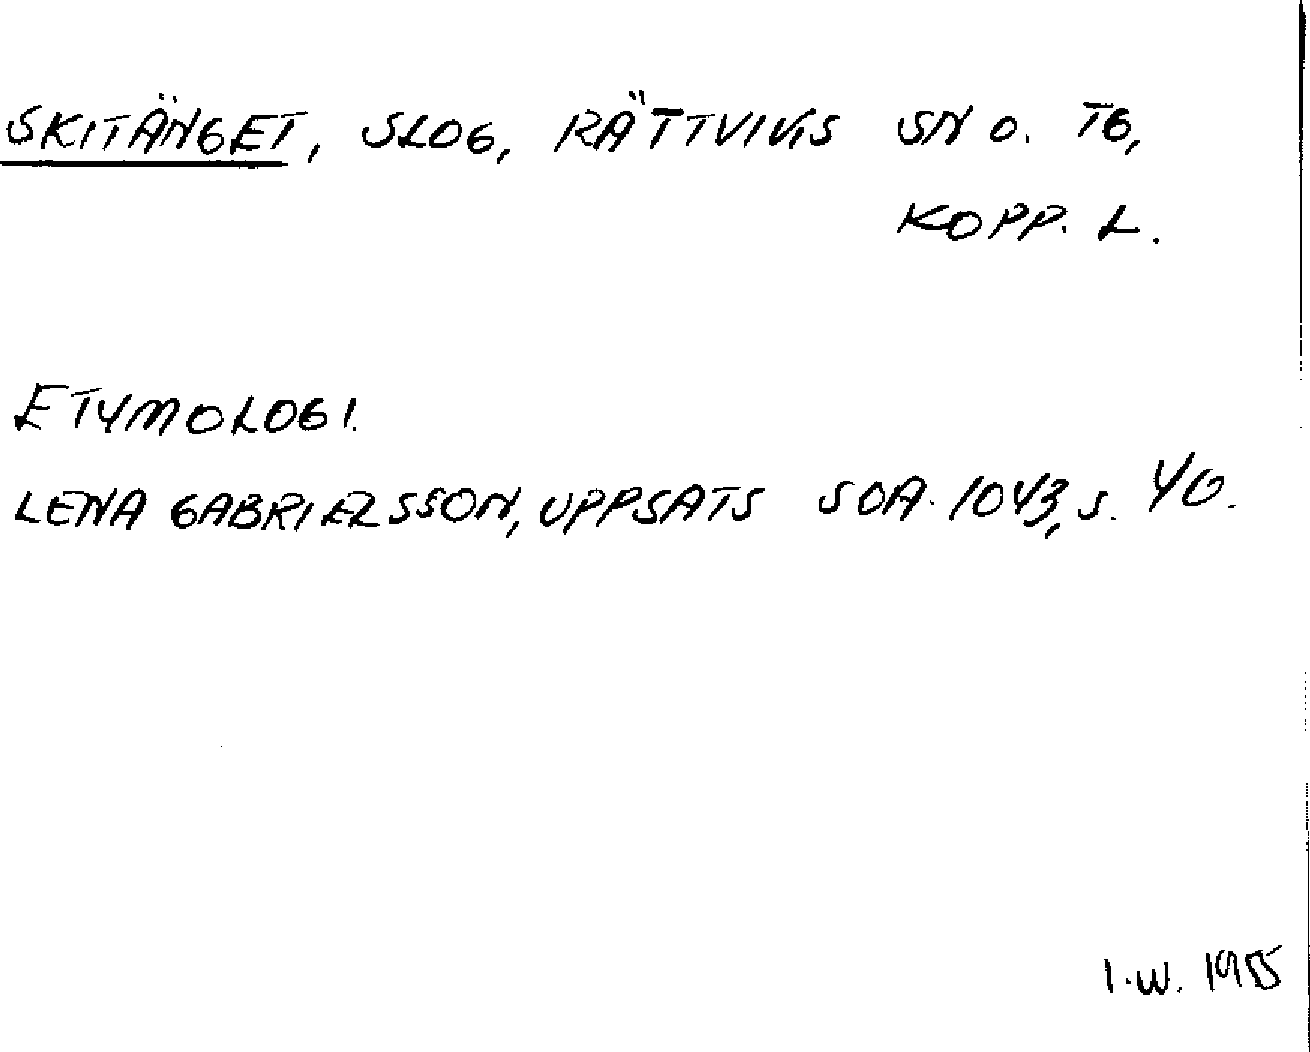 SKITÄNGET, SLOG, RÄTTVIKS SN O. TG,
KOPP. L.
ETYMOLOGI.
LENA GABRIELSSON, UPPSATS SOA. 1043, S. 40.
I.W.